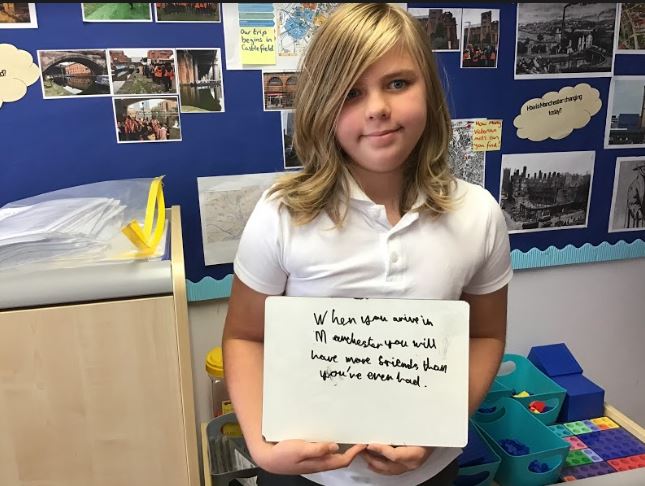 Our trip
begins in
Castlefield
How is Manchester changing
today?
How many
Victorian
mills can you
find?
When you arrive in
Manchester you will
have more friends than
you've ever had.